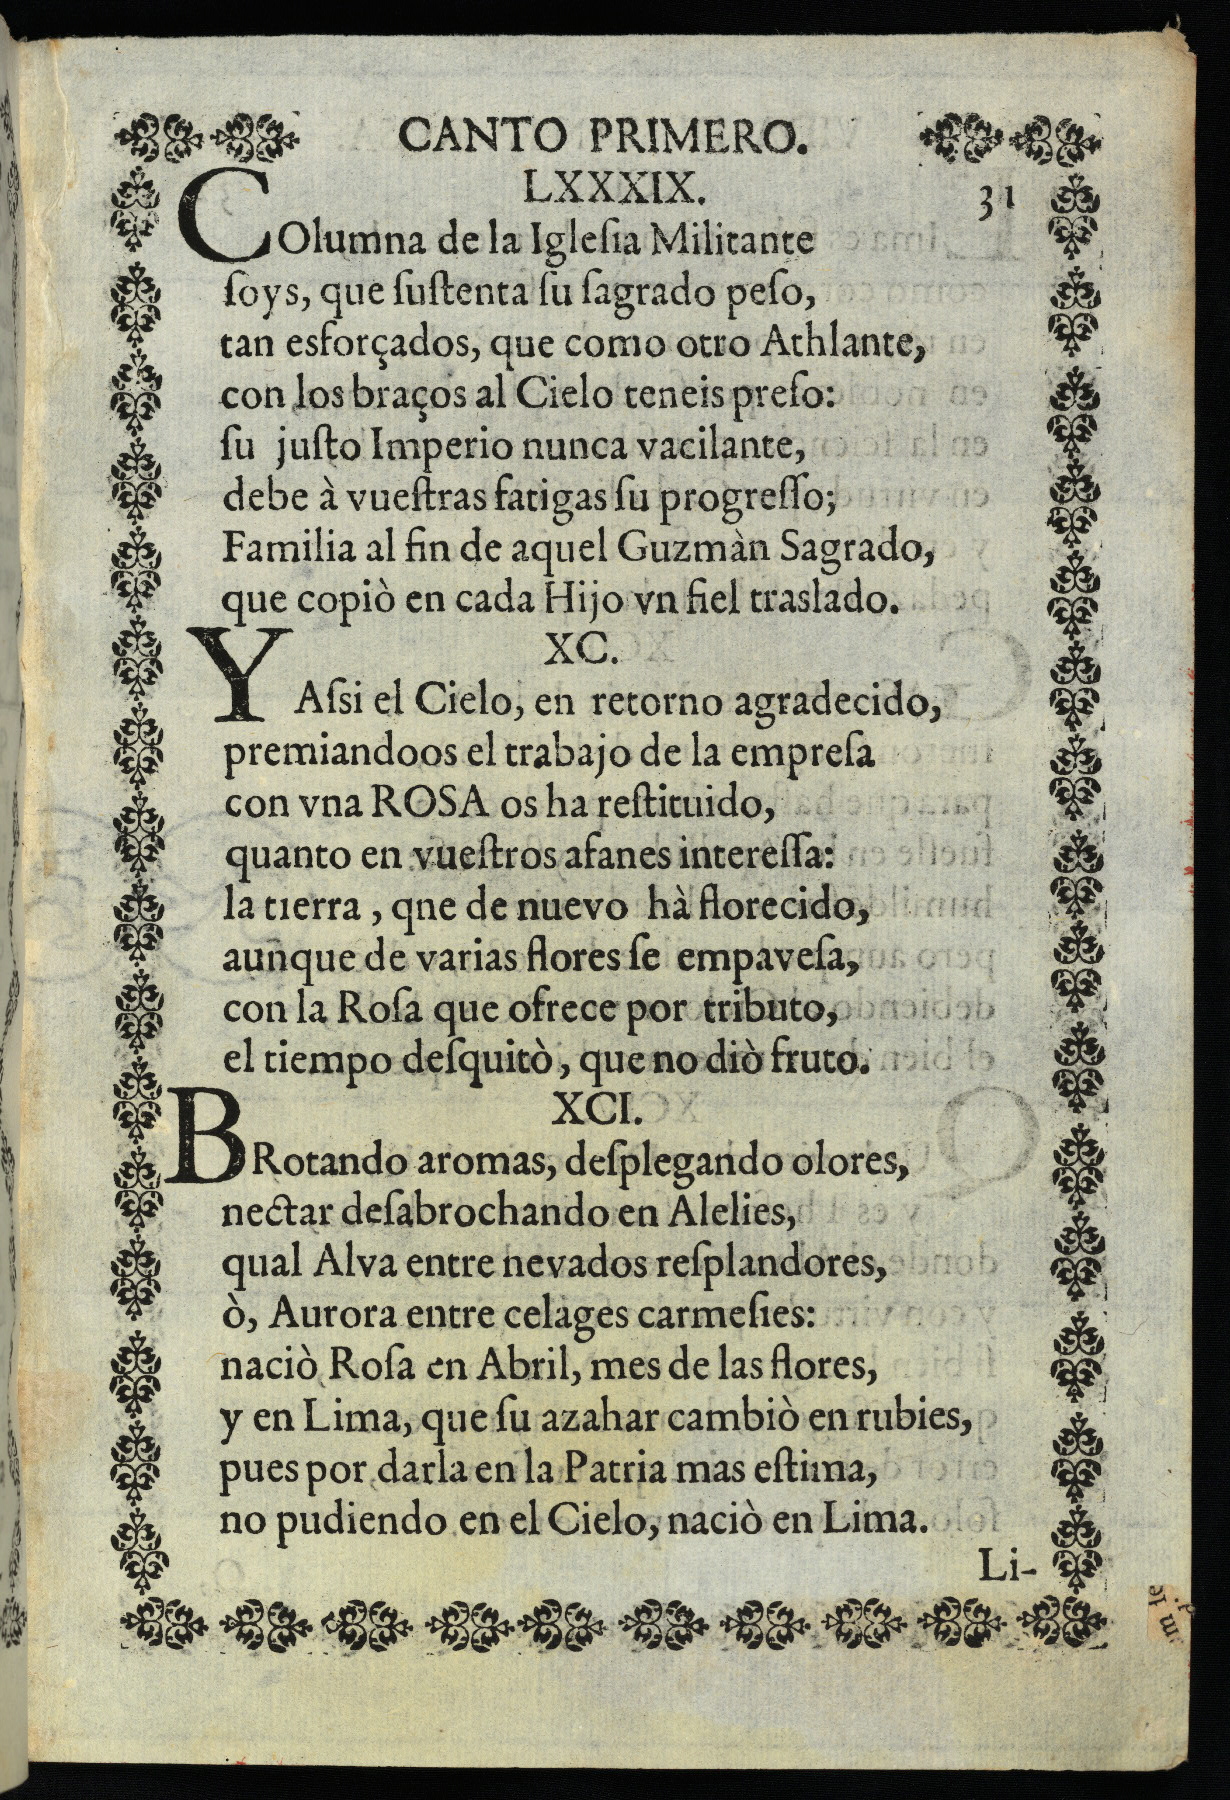 CANTO PRIMERO.
LXXXIX. 31
COlumna de la Igleſia Militante
ſoys, que ſuſtenta ſu ſagrado peſo,
tan esforçados, que como otro Athlante,
con los braços al Cielo teneis preſo:
ſu juſto Imperio nunca vacilante,
debe à vueſtras fatigas ſu progreſſo;
Familia al fin de aquel Guzmàn Sagrado,
que copiò en cada Hijo vn fiel traslado.
XC.
Y Aſsi el Cielo, en retorno agradecido,
premiandoos el trabajo de la empreſa
con vna ROSA os ha reſtituido,
quanto en vueſtros afanes intereſſa:
la tierra, qne de nuevo hà florecido,
auñque de varias flores ſe empaveſa,
con la Roſa que ofrece por tributo,
el tiempo deſquitò, que no diò fruto.
XCI.
BRotando aromas, deſplegando olores,
nectar deſabrochando en Alelies,
qual Alva entre nevados reſplandores,
ò, Aurora entre celages carmeſies:
naciò Roſa en Abril, mes de las flores,
y en Lima, que ſu azahar cambiò en rubies,
pues por darla en la Patria mas eſtima,
no pudiendo en el Cielo, naciò en Lima.
Li-